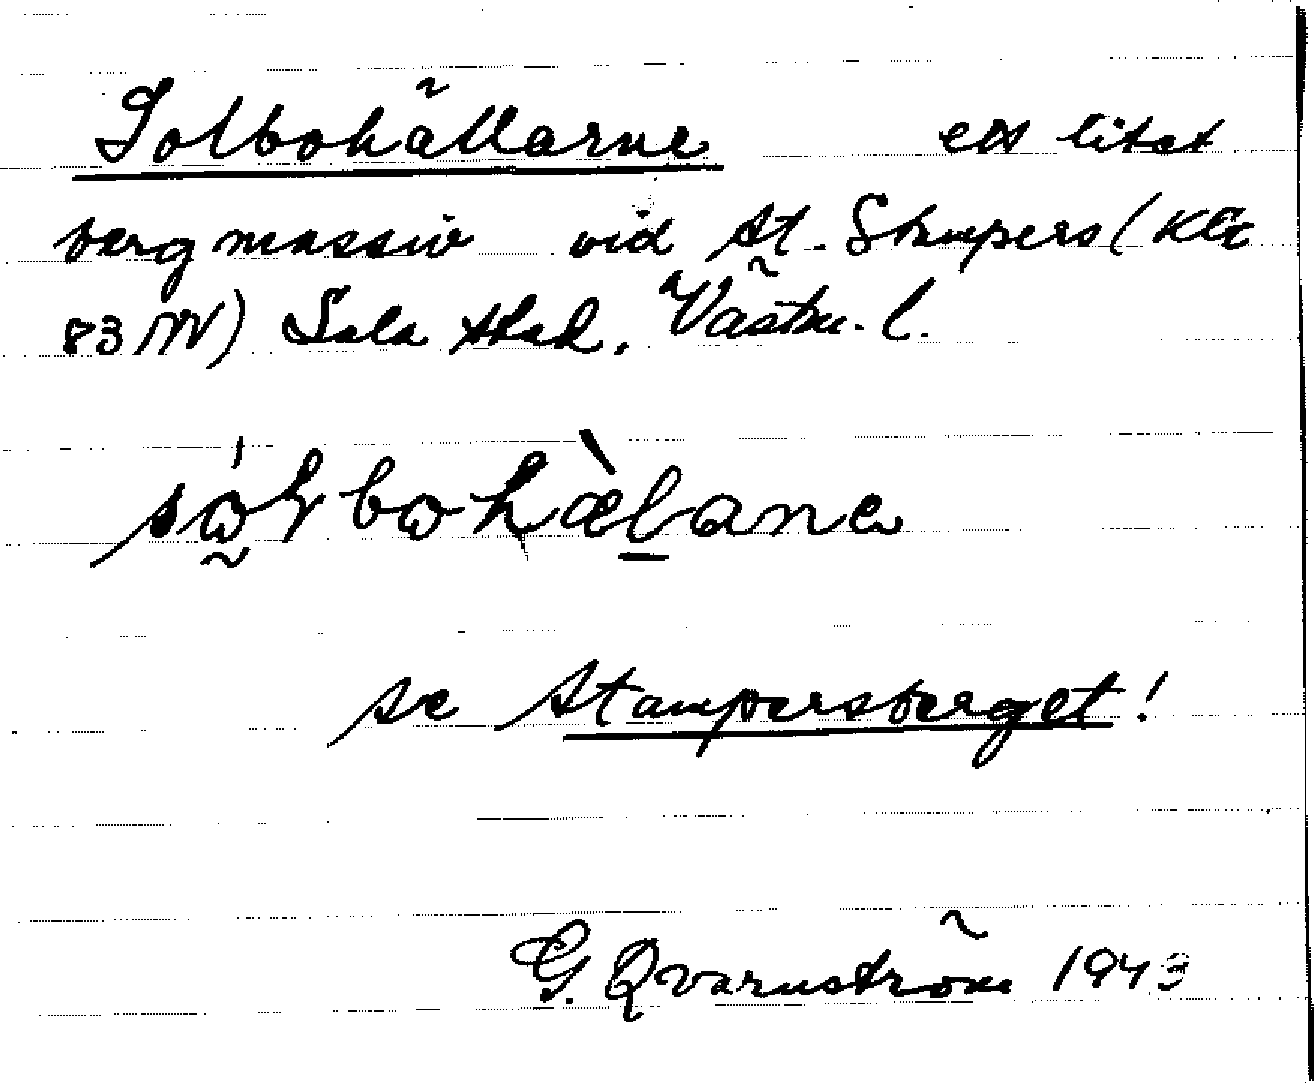 Solbohällarne ett litet
bergmassiv vid St. Stampers (Kla
83 NV) Sala stad, Västm. l.
se Stampersberget!
G. Qvarnström 1943